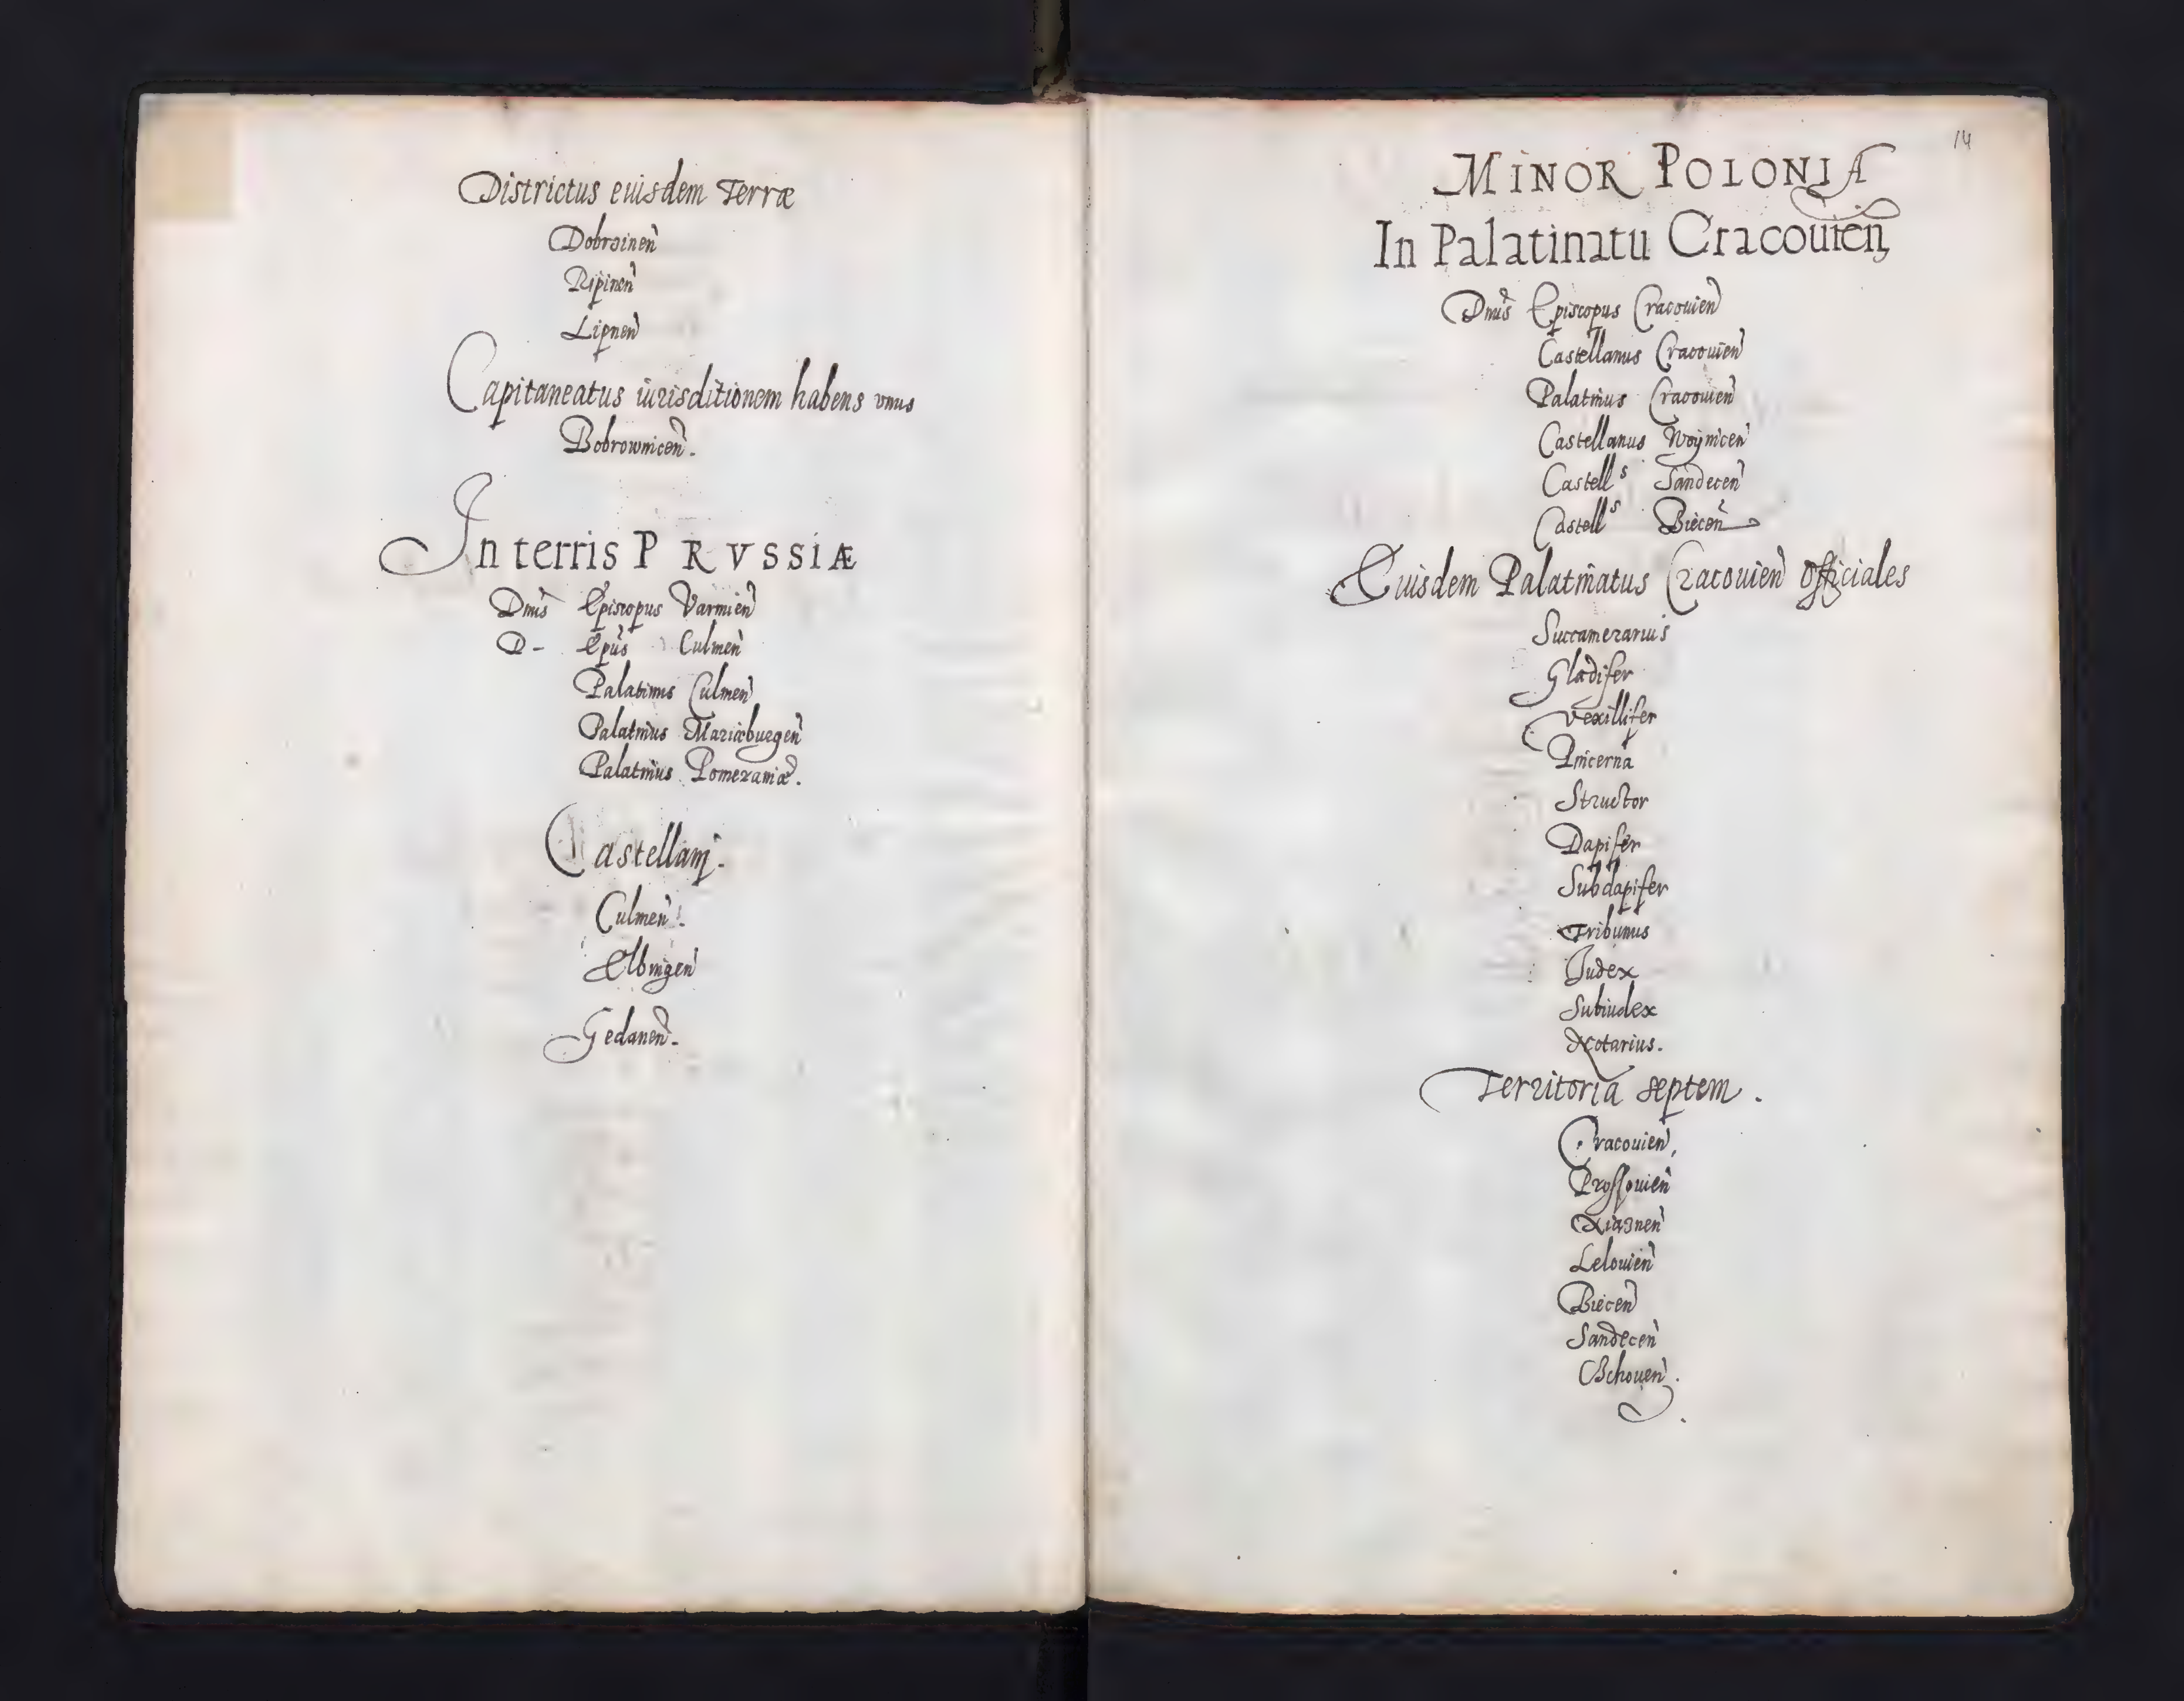 Districtus euisdem Terræ
Dobrzinen̄
Ripinen̄
Lipnen̄
Capitaneatus iurisditionem habens vnus
Bobrownicen̄.
In terris PRVSSIÆ
Dnūs Episcopus Varmien̄
D- Epūs Culmen̄
Palatinus Culmen̄
Palatinus Mariæburgen̄
Palatinus Pomeraniæ.
Castellanj.
Culmen̄.
Elbingen̄
Gedanen̄.
14
MINOR POLONIA
In Palatinatu Cracouien̄
Dnūs Episcopus Cracouien̄
Castellanus Cracouien̄
Palatinus Cracouien̄
Castellanus Woÿnicen̄
Castellˢ Sandecen̄
Castellˢ Biecen̄
Euisdem Palatinatus Cracouien̄ officiales
Succamerarius
Gladifer
Vexillifer
Pincerna
Structor
Dapifer
Subdapifer
Tribunus
Judex
Subiudex
Notarius.
Territoria septem.
Cracouien̄,
Prossouien̄
Xiaznen̄
Lelouien̄
Biecen̄
Sandecen̄
Schouen̄.